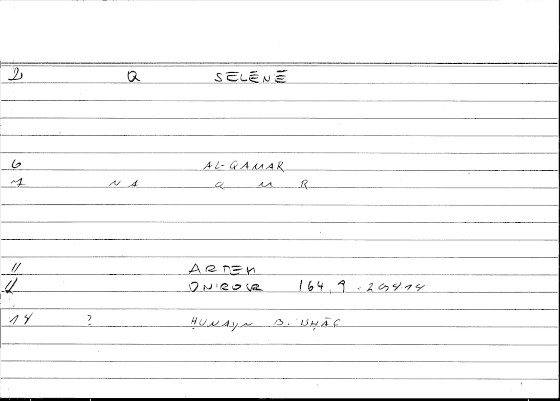 2 Q SELĒNĒ
6 AL-QAMAR
7 N A Q M R
11 ARTEM
ONIROCR 164, 9
14 ? ḤUNAYN B. ISḤĀQ